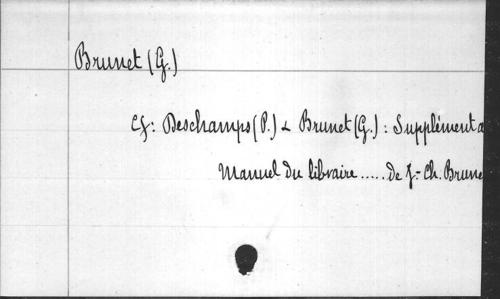 Brunet (G.)
Cf: Deschamps (P.) & Brunet (G.) : Supplément a
Manuel du libraire ..... de J.-Ch. Brune